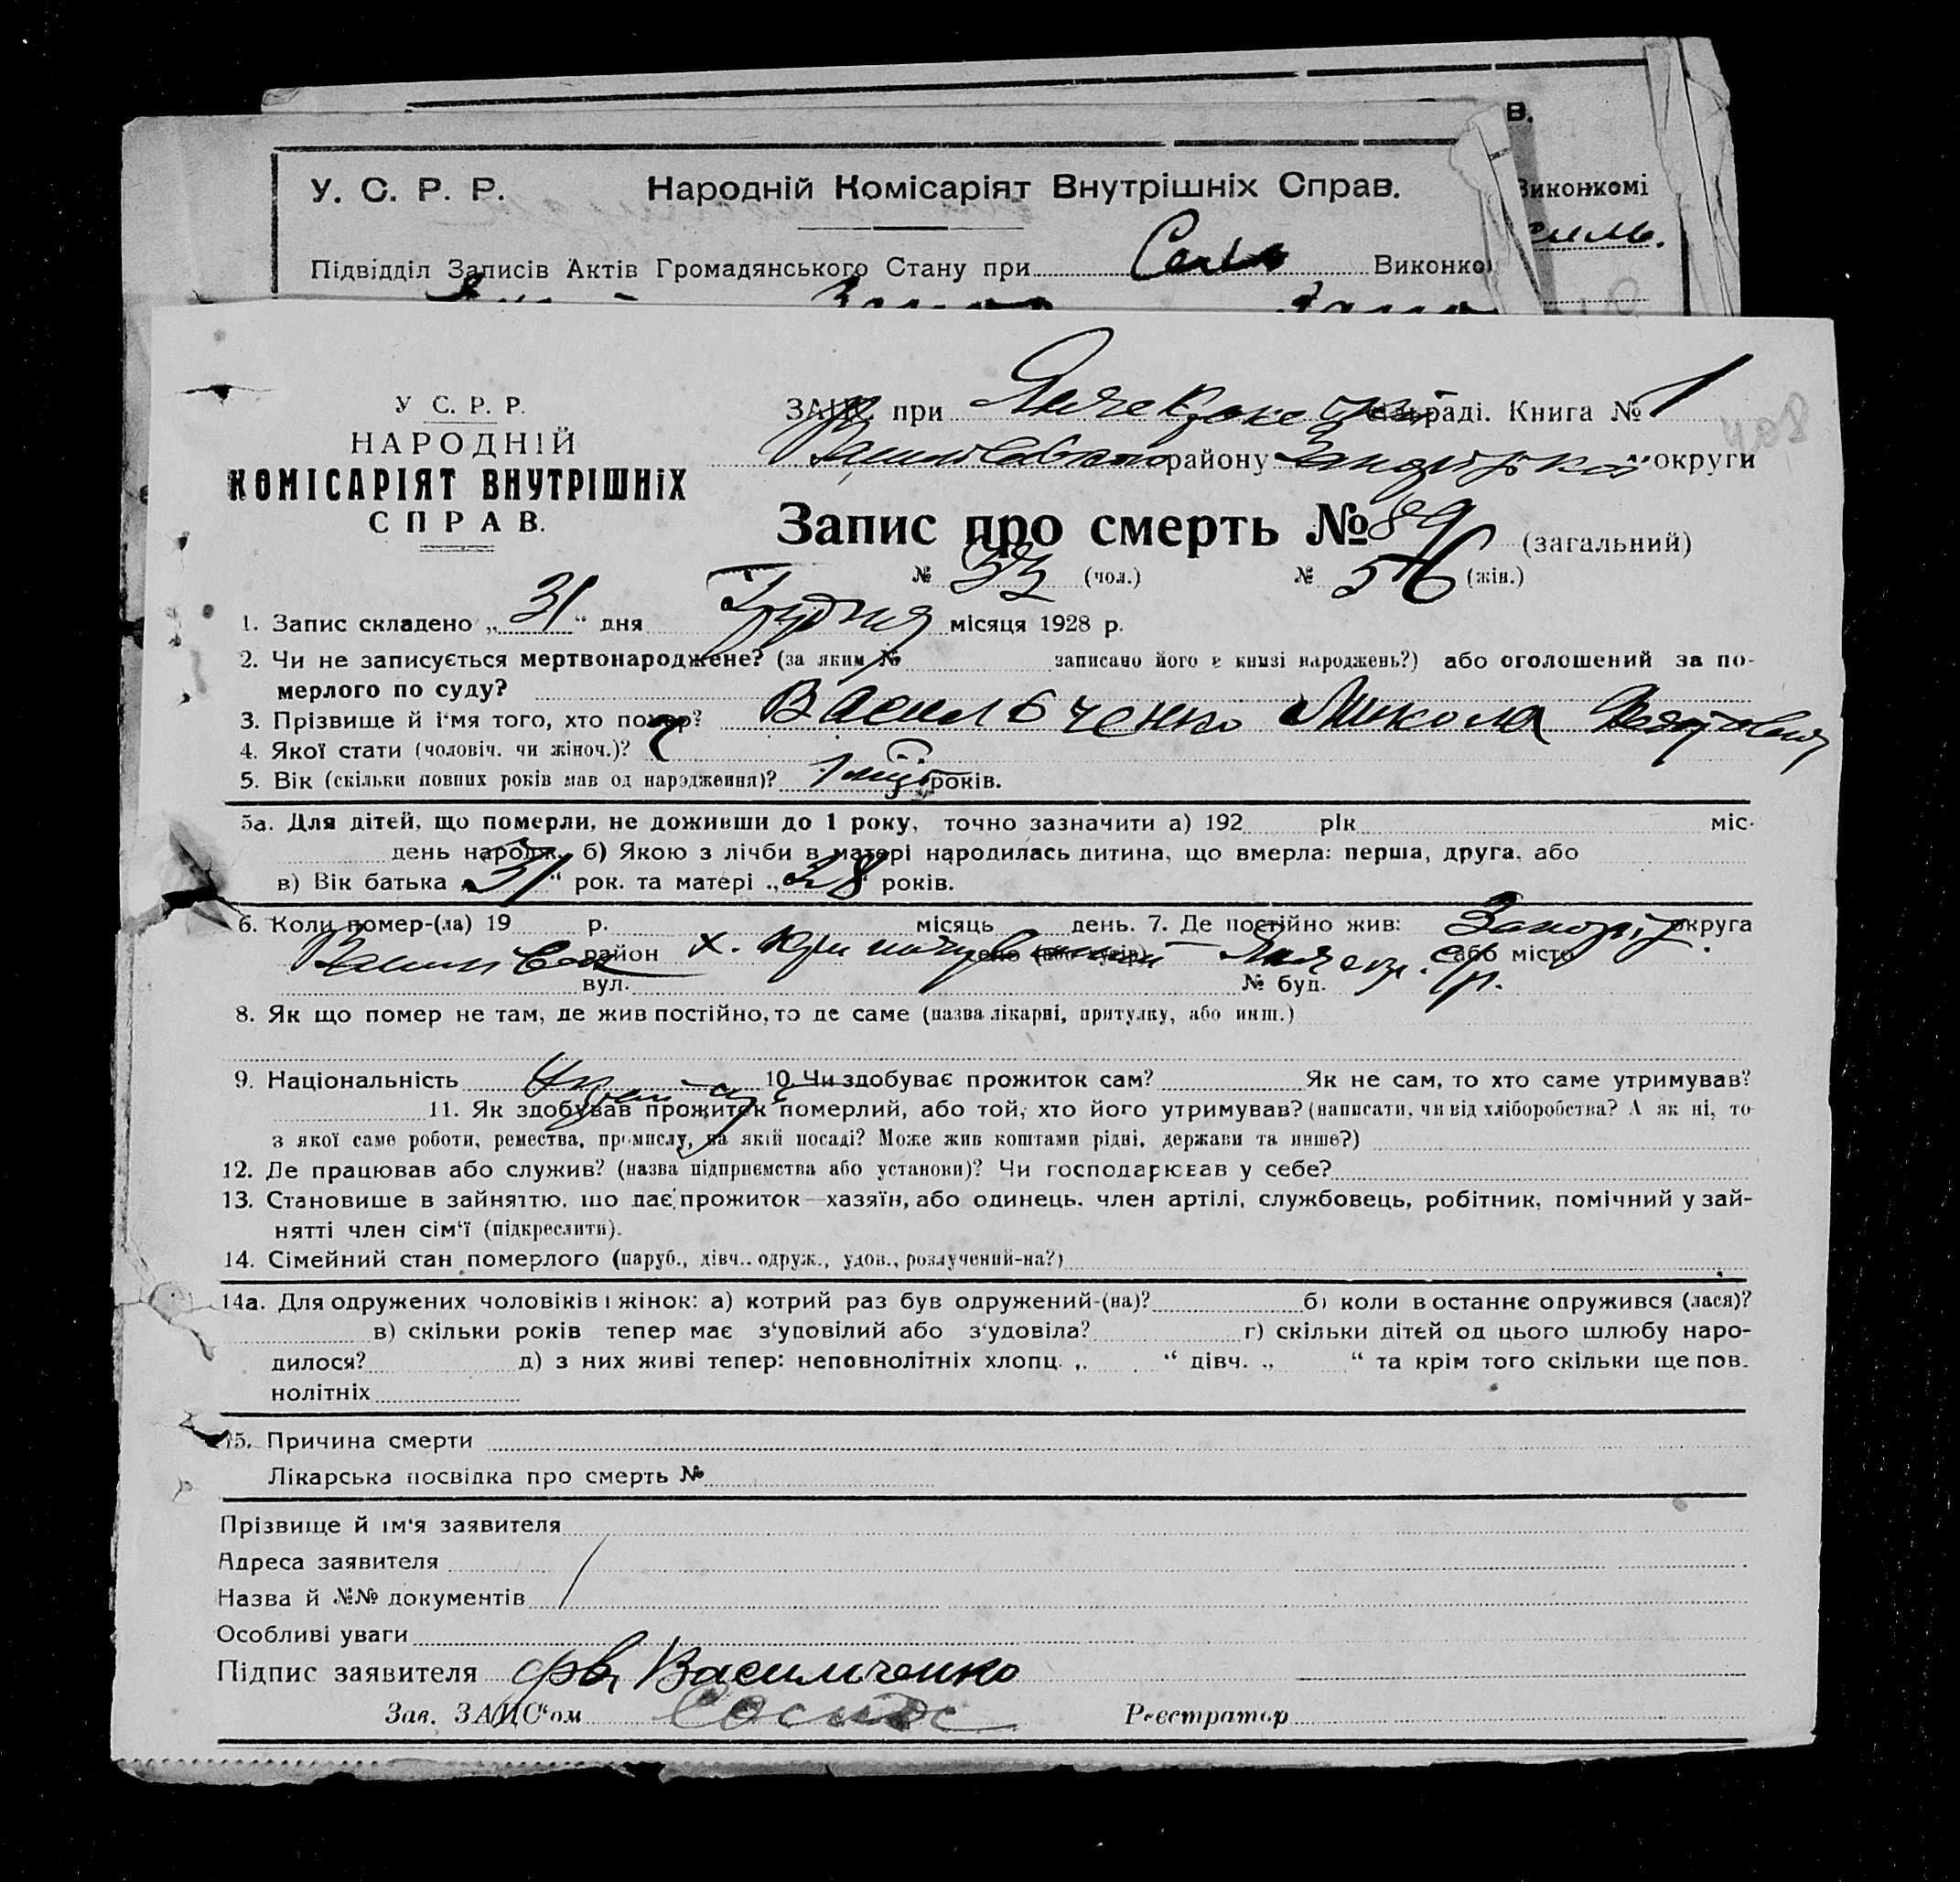 В.
У. С. Р. Р. Народній Комісаріят Внутрішніх Справ. Виконкомі
Підвідділ Записів Актів Громадянського Стану при Виконко
У С. Р. Р.
НАРОДНІЙ
КОМІСАРІЯТ ВНУТРІШНІХ
СПРАВ.
408
ЗАГС при сільраді. Книга № 1
району округи
Запис про смерть № 89 (загальний)
№ 33 (чол.) № 56 (жін.)
1. Запис складено „31“ дня Грудня місяця 1928 р.
2. Чи не записується мертвонароджене? (за яким № записано його в книзі народжень?) або оголошений за по-
мерлого по суду?
3. Прізвище й і'мя того, хто помер? Васильченко Микола
4. Якої статі (чоловіч. чи жіноч.)? ч
5. Вік (скільки повних років мав од народження)? 1 міс років.
5а. Для дітей, що померли, не доживши до 1 року, точно зазначити а) 192 рік міс-
день народж. б) Якою з лічби в матері народилась дитина, що вмерла: перша, друга, або
в) Вік батька „31“ рок. та матері „28“ років.
6. Коли помер-(ла) 19 р. місяць день. 7. Де постійно жив: Запоріз округа
район х. або місто
вул. № буд.
8. Як що помер не там, де жив постійно, то де саме (назва лікарні, притулку, або инш.)
9. Національність 10. Чи здобуває прожиток сам? Як не сам, то хто саме утримував?
11. Як здобував прожиток померлий, або той, хто його утримував? (написати, чи від хліборобства? А як ні, то
з якої саме роботи, ремества, промислу, на якій посаді? Може жив коштами рідні, держави та инше?)
12. Де працював або служив? (назва підприємства або установи)? Чи господарював у себе?
13. Становище в зайняттю, що дає прожиток—хазяїн, або одинець, член артілі, службовець, робітник, помічний у зай-
нятті член сім'ї (підкреслити).
14. Сімейний стан померлого (паруб., дівч.. одруж., удов., розлучений-на?)
14а. Для одружених чоловіків і жінок: а) котрий раз був одружений-(на)? б) коли востаннє одружився (лася)?
в) скільки років тепер має з'удовілий або з'удовіла? г) скільки дітей од цього шлюбу наро-
дилося? д) з них живі тепер: неповнолітніх хлопц. „ “ дівч. „ “ та крім того скільки ще пов.
нолітніх
15. Причина смерти
Лікарська посвідка про смерть №
Прізвище й ім'я заявителя
Адреса заявителя
Назва й №№ документів
Особливі уваги
Підпис заявителя Васильченко
Зав. ЗАГС'ом Реєстратор